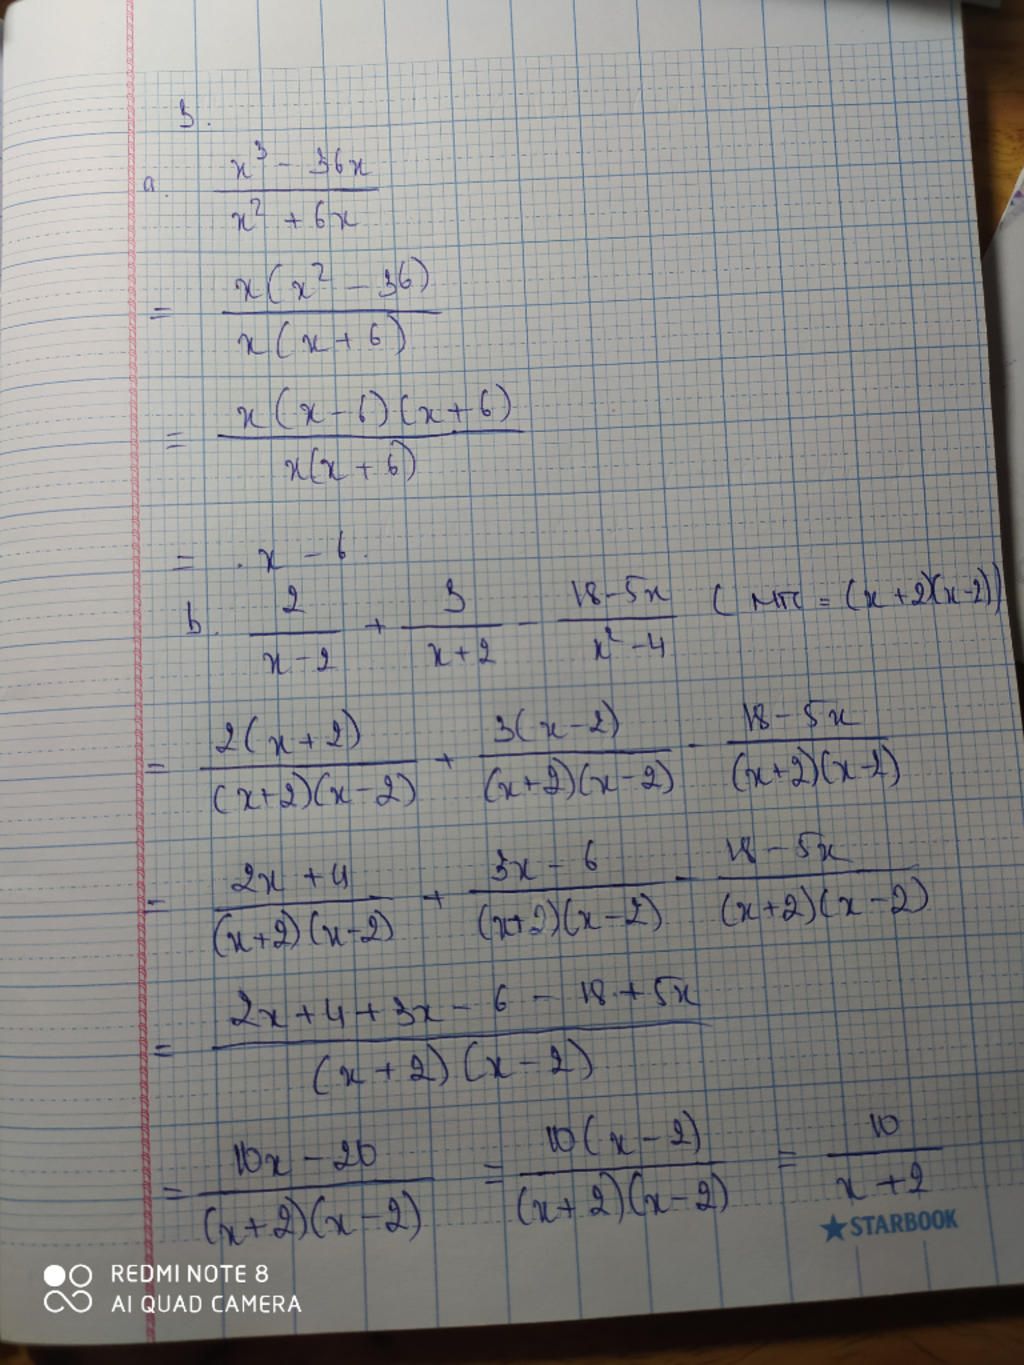 3.
a. x³ - 36x / x² + 6x
= x(x² - 36) / x(x + 6)
= x(x - 6)(x + 6) / x(x + 6)
= x - 6.
b. 2 / x - 2 + 3 / x + 2 - 18 - 5x / x² - 4 ( MTC = (x + 2)(x - 2))
= 2(x + 2) / (x + 2)(x - 2) + 3(x - 2) / (x + 2)(x - 2) - 18 - 5x / (x + 2)(x - 2)
= 2x + 4 / (x + 2)(x - 2) + 3x - 6 / (x + 2)(x - 2) - 18 - 5x / (x + 2)(x - 2)
= 2x + 4 + 3x - 6 - 18 + 5x / (x + 2)(x - 2)
= 10x - 20 / (x + 2)(x - 2) = 10(x - 2) / (x + 2)(x - 2) = 10 / x + 2
STARBOOK
REDMI NOTE 8
AI QUAD CAMERA